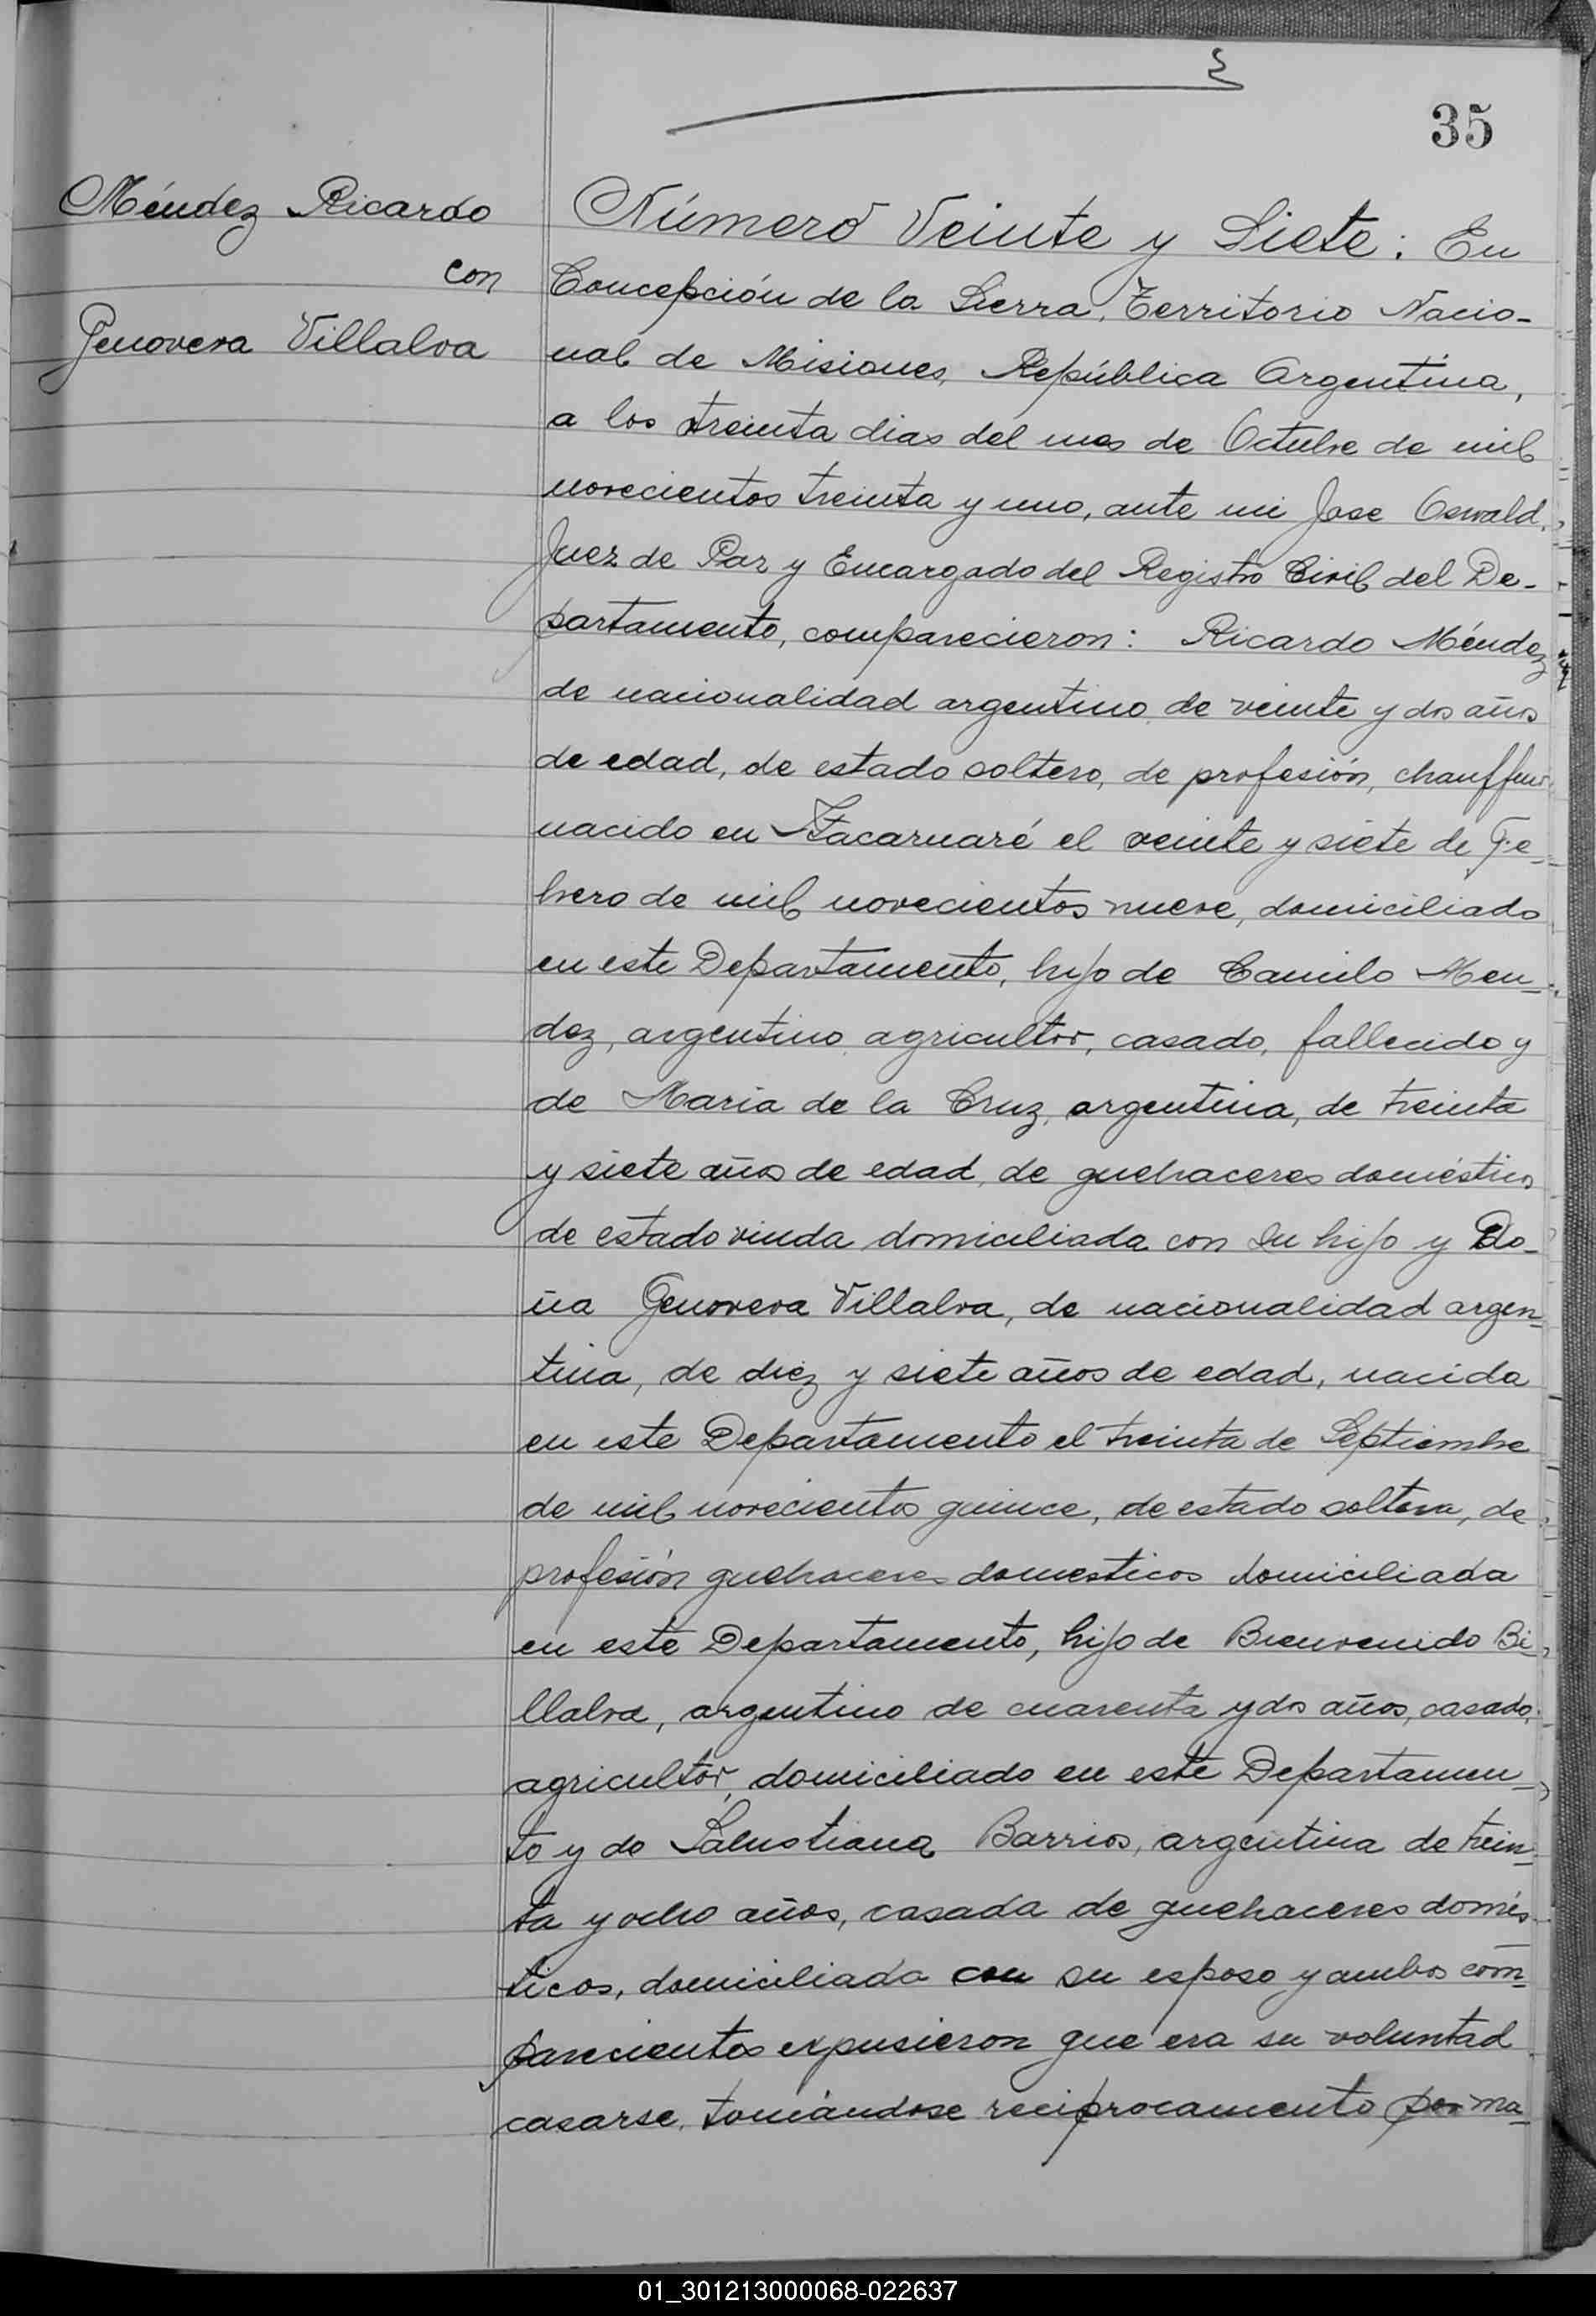 35
Méndez Ricardo
con
Genoveva Villalva
Número Veinte y Siete: En
Concepción de la Sierra, Territorio Nacio-
nal de Misiones, República Argentina,
a los treinta dias del mes de Octubre de mil
novecientos treinta y uno, ante mi Jose Oswald,
Juez de Paz y Encargado del Registro Civil del De-
partamento, comparecieron: Ricardo Méndez
de nacionalidad argentino, de veinte y dos años
de edad, de estado soltero, de profesión, chauffeur
nacido en Itacaruaré el veinte y siete de Fe-
brero de mil novecientos nueve, domiciliado
en este Departamento, hijo de Camilo Men-
dez, argentino, agricultor, casado, fallecido y
de Maria de la Cruz, argentina, de treinta
y siete años de edad, de quehaceres domésticos
de estado viuda domiciliada con su hijo y Do-
ña Genoveva Villalva, de nacionalidad argen-
tina, de diez y siete años de edad, nacida
en este Departamento el treinta de Septiembre
de mil novecientos quince, de estado soltera, de
profesión quehaceres domesticos domiciliada
en este Departamento, hijo de Bienvenido Bi-
llalva, argentino de cuarenta y dos años, casado,
agricultor, domiciliado en este Departamen-
to y de Salustiana Barrios, argentina de trein-
ta y ocho años, casada de quehaceres domés-
ticos, domiciliada con su esposo y ambos com-
parecientes expusieron que era su voluntad
casarse, tomándose reciprocamente por ma-
01_301213000068-022637